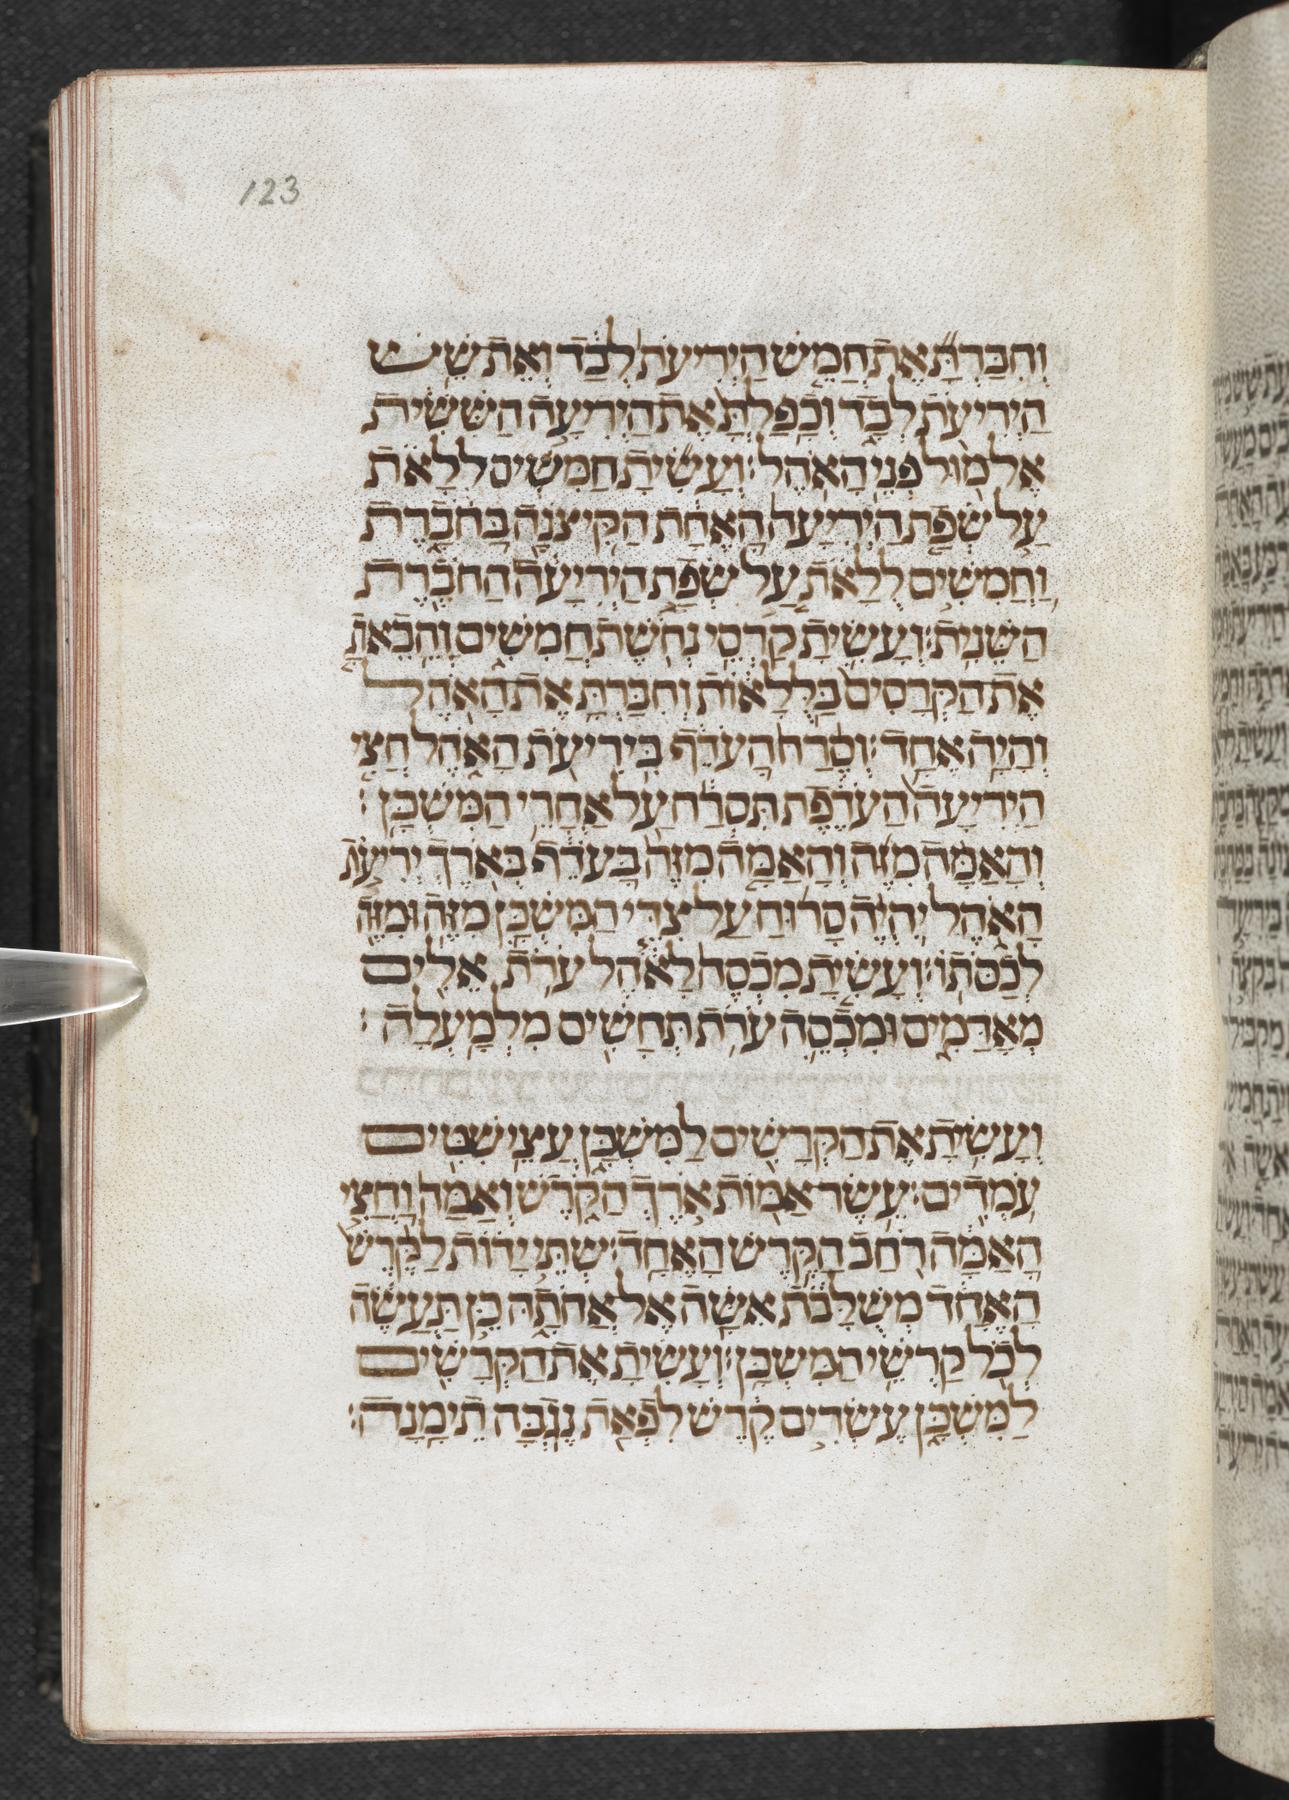 123
וְחִבַּרְתָּ אֶת חֲמֵשׁ הַיְרִיעֹת לְבַד וְאֶת שֵׁשׁ
הַיְרִיעֹת לְבָד וְכָפַלְתָּ אֶת הַיְרִיעָה הַשִּׁשִּׁית
אֶל מוּל פְּנֵי הָאֹהֶל׃ וְעָשִׂיתָ חֲמִשִּׁים לֻלָאֹת
עַל שְׂפַת הַיְרִיעָה הָאֶחָת הַקִּיצֹנָה בַּחֹבָרֶת
וַחֲמִשִּׁים לֻלָאֹת עַל שְׂפַת הַיְרִיעָה הַחֹבֶרֶת
הַשֵּׁנִית׃ וְעָשִׂיתָ קַרְסֵי נְחֹשֶׁת חֲמִשִּׁים וְהֵבֵאתָ
אֶת הַקְּרָסִים בַּלֻּלָאוֹת וְחִבַּרְתָּ אֶת הָאֹהֶל
וְהָיָה אֶחָד׃ וְסֶרַח הָעֹדֵף בִּירִיעֹת הָאֹהֶל חֲצִי
הַיְרִיעָה הָעֹדֶפֶת תִּסְרַח עַל אֲחֹרֵי הַמִּשְׁכָּן׃
וְהָאַמָּה מִזֶּה וְהָאַמָּה מִזֶּה בָּעֹדֵף בְּאֹרֶךְ יְרִיעֹת
הָאֹהֶל יִהְיֶה סָרוּחַ עַל צִדֵּי הַמִּשְׁכָּן מִזֶּה וּמִזֶּה
לְכַסֹּתוֹ׃ וְעָשִׂיתָ מִכְסֶה לָאֹהֶל עֹרֹת אֵלִים
מְאָדָּמִים וּמִכְסֵה עֹרֹת תְּחָשִׁים מִלְמָעְלָה׃
וְעָשִׂיתָ אֶת הַקְּרָשִׁים לַמִּשְׁכָּן עֲצֵי שִׁטִּים
עֹמְדִים׃ עֶשֶׂר אַמּוֹת אֹרֶךְ הַקָּרֶשׁ וְאַמָּה וַחֲצִי
הָאַמָּה רֹחַב הַקֶּרֶשׁ הָאֶחָד׃ שְׁתֵּי יָדוֹת לַקֶּרֶשׁ
הָאֶחָד מְשֻׁלָּבֹת אִשָּׁה אֶל אֲחֹתָהּ כֵּן תַּעֲשֶׂה
לְכֹל קַרְשֵׁי הַמִּשְׁכָּן׃ וְעָשִׂיתָ אֶת הַקְּרָשִׁים
לַמִּשְׁכָּן עֶשְׂרִים קֶרֶשׁ לִפְאַת נֶגְבָּה תֵימָנָה׃